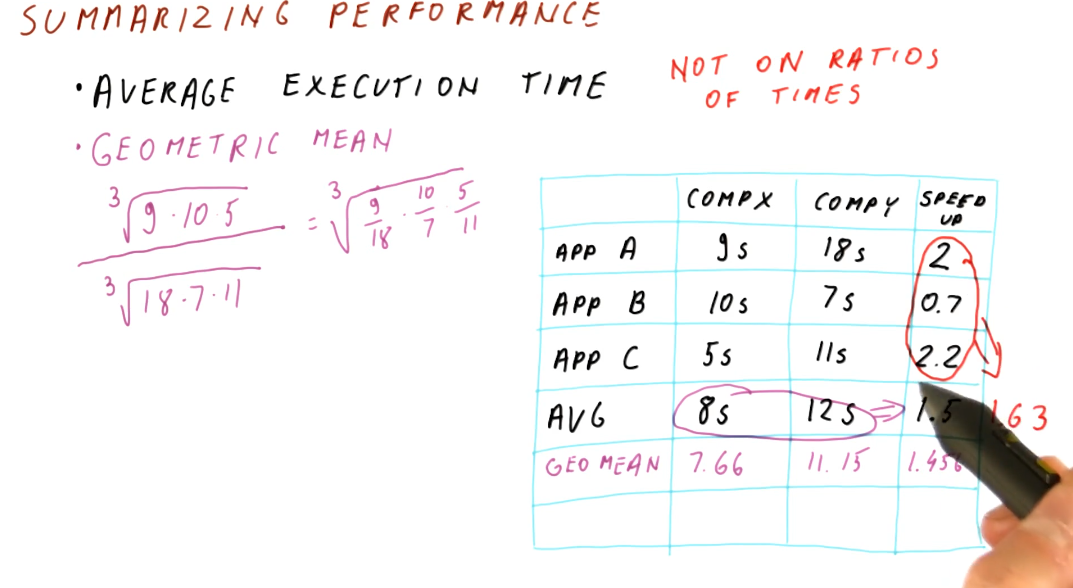 SUMMARIZING PERFORMANCE
• AVERAGE EXECUTION TIME
NOT ON RATIOS
OF TIMES
• GEOMETRIC MEAN
∛(9·10·5) / ∛(18·7·11) = ∛(9/18 · 10/7 · 5/11)
COMPX COMPY SPEED UP
APP A 9s 18s 2
APP B 10s 7s 0.7
APP C 5s 11s 2.2
AVG 8s 12s ⇒ 1.5 1.63
GEO MEAN 7.66 11.15 1.456